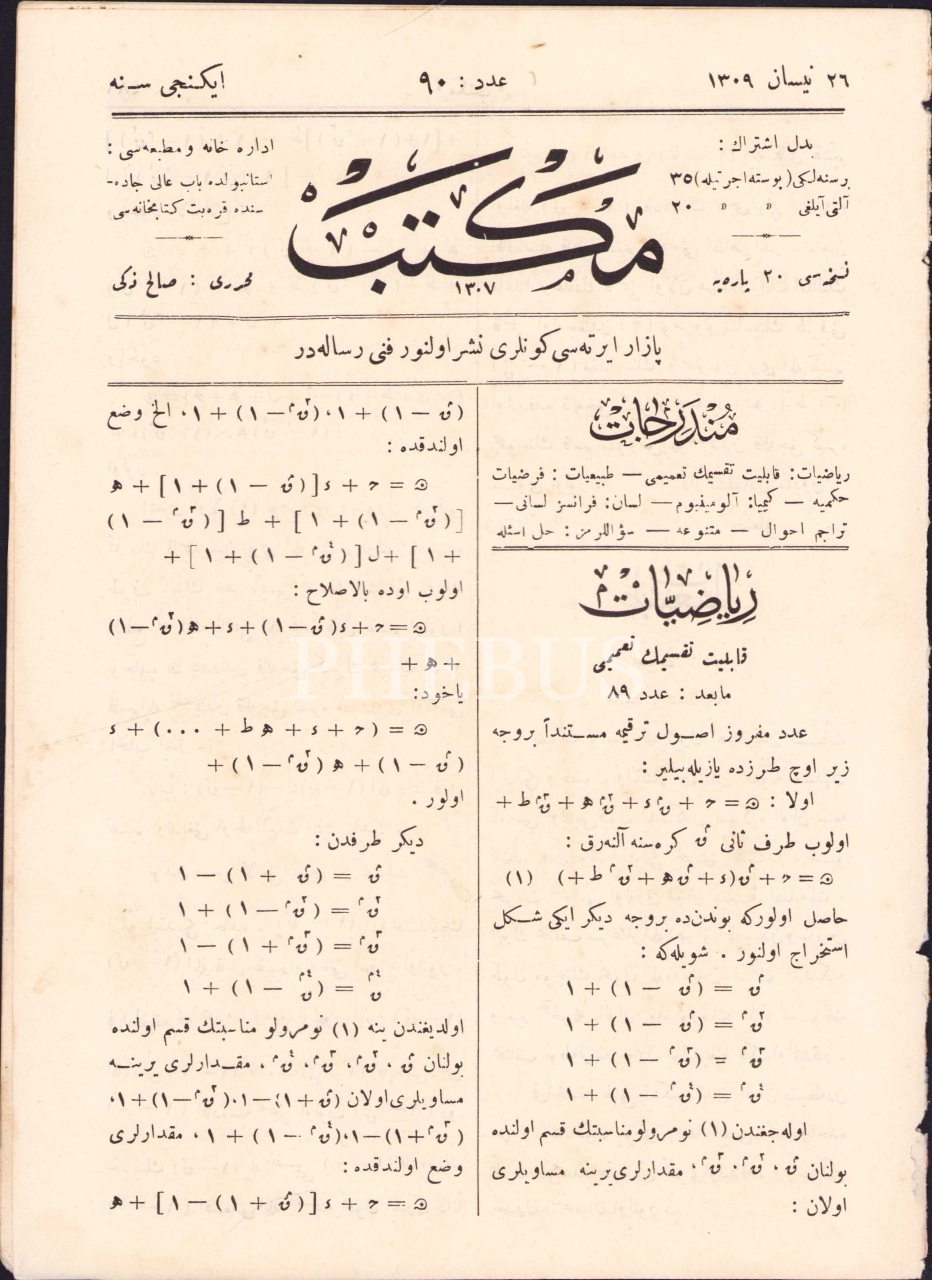 ٢٦ نيسان ١٣٠٩
عدد : ٩٠
ايكنجى سنه
بدل اشتراك :
(پوسته اجرتيله) ٣٥
آلتى آيلغى » » ٢٠
نسخه‌سى ٢٠ پاره‌يه
مكتب
١٣٠٧
اداره خانه و مطبعه‌سى :
استانبولده باب عالى جاده-
سنده قره‌بت كتابخانه‌سى
محررى : صالح ذكى
پازار ايرته‌سى كونلرى نشر اولنور فنى رساله‌در
مندرجات
رياضيات: قابليت تقسيمك تعميمى — طبيعيات : فرضيات
حكميه — كيميا: آلومينيوم — لسان: فرانسز لسانى —
تراجم احوال — متنوعه — سؤاللرمز : حل اسئله
رياضيات
قابليت تقسيمك تعميمى
مابعد : عدد ٨٩
عدد مفروز اصول ترقيمه مستنداً بروجه
زير اوچ طرزده يازيله‌بيلير :
اولا :
اولوب طرف ثانى ق كره‌سنه آلنه‌رق :
(١)
حاصل اولوركه بوندن‌ده بروجه ديكر ايكى شكل
استخراج اولنور . شويله‌كه :
ق = (ق − ١) + ١
ق٢ = (ق٢ − ١) + ١
ق٣ = (ق٣ − ١) + ١
ق٤ = (ق٤ − ١) + ١
اوله‌جغندن (١) نومرولو مناسبتك قسم اولنده
بولنان ق، ق٢، ق٣، مقدارلرى يرينه مساويلرى
اولان :
(ق − ١) + ١، (ق٢ − ١) + ١، الخ وضع
اولندقده :
اولوب اوده بالاصلاح :
ياخود:
اولور .
ديكر طرفدن :
ق = (ق + ١) − ١
ق٢ = (ق٢ − ١) + ١
ق٣ = (ق٣ + ١) − ١
ق٤ = (ق٤ − ١) + ١
اولديغندن ينه (١) نومرولو مناسبتك قسم اولنده
بولنان ق، ق٢، ق٣، ق٤، مقدارلرى يرينه
مساويلرى اولان (ق + ١) − ١، (ق٢ − ١) + ١،
(ق٣ + ١) − ١، (ق٤ − ١) + ١، مقدارلرى
وضع اولندقده :
PHEBUS